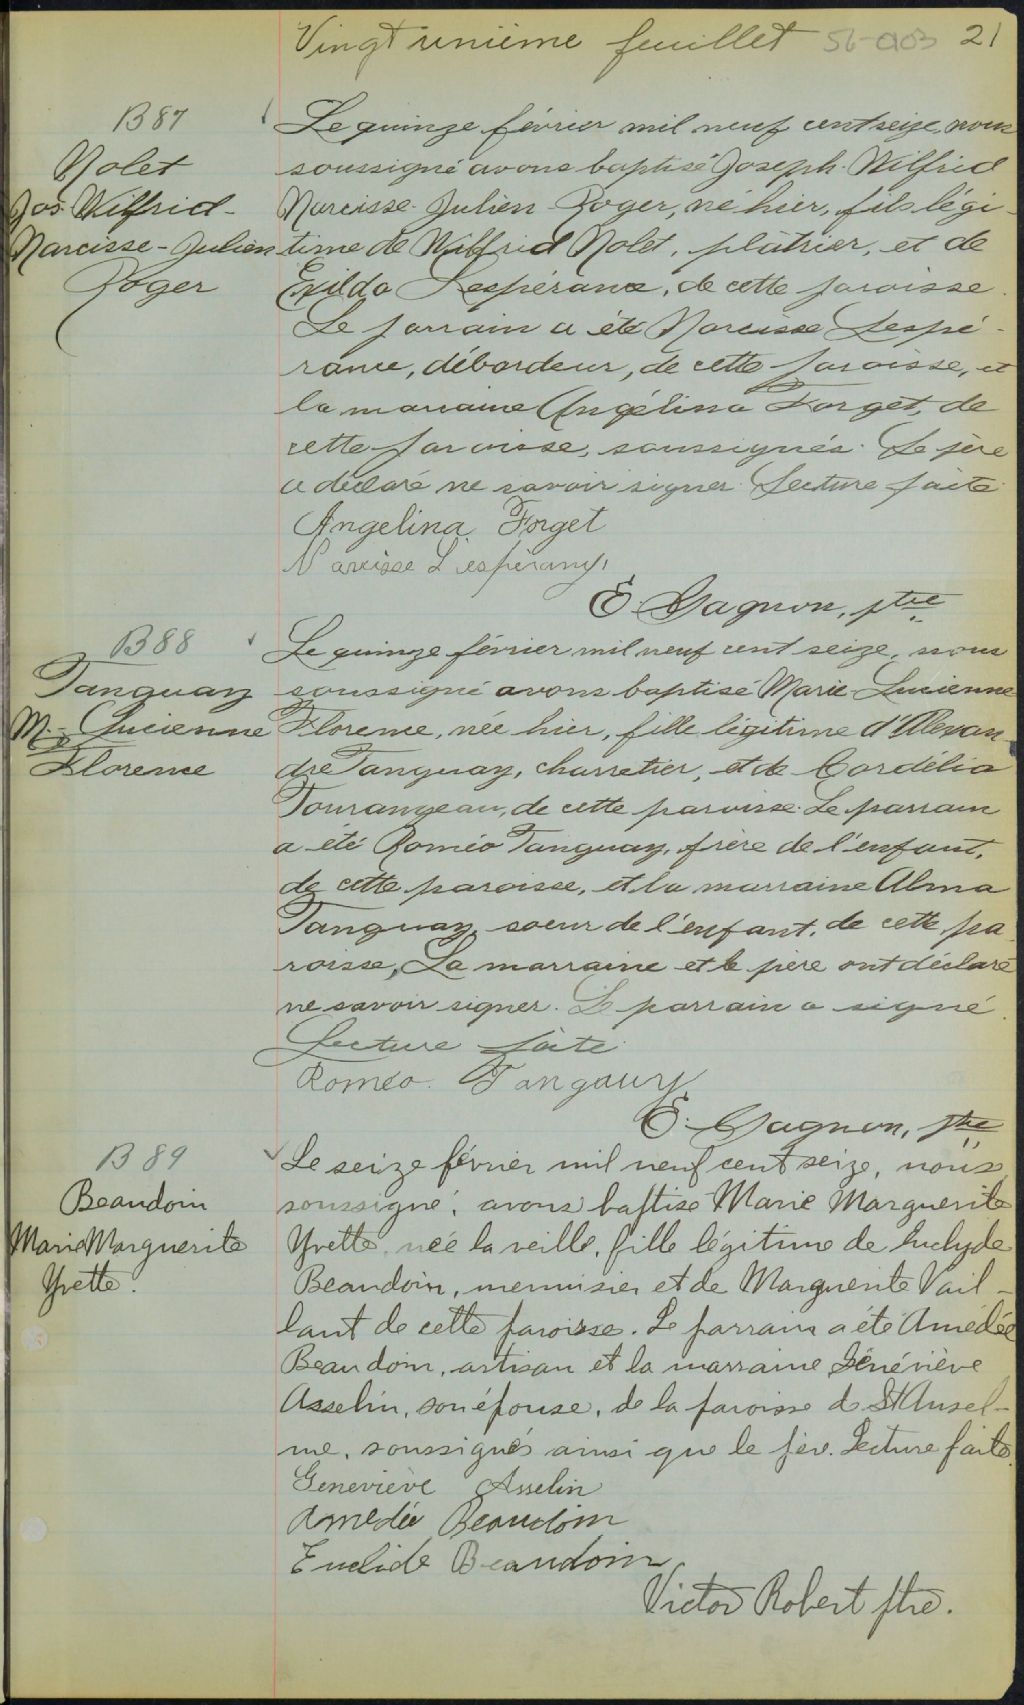 Vingt unième feuillet 56-003 21
B 87
Nolet
Jos-Wilfrid-
Narcisse-Julien
Roger
Le quinze février mil neuf cent seize, nous
soussigné avons baptisé Joseph-Wilfrid
Narcisse-Julien-Roger, né hier, fils légi-
time de Wilfrid Nolet, plâtrier, et de
Exilda Lespérance, de cette paroisse.
Le parrain a été Narcisse Lespé-
rance, débardeur, de cette paroisse, et
la marraine Angélina Forget, de
cette paroisse, soussignés. Le père
a déclaré ne savoir signer. Lecture faite
Angelina Forget
Narcisse L'esperany,
E. Gagnon, ptre
B 88
Tanguay
M.-Lucienne
Florence
Le quinze février mil neuf cent seize, nous
soussigné avons baptisé Marie-Lucienne
Florence, née hier, fille légitime d'Alexan-
dre Tanguay, charretier, et de Cordélia
Tourangeau, de cette paroisse. Le parrain
a été Roméo Tanguay, frère de l'enfant,
de cette paroisse, et la marraine Alma
Tanguay, soeur de l'enfant, de cette pa-
roisse, La marraine et le père ont déclaré
ne savoir signer. Le parrain a signé.
Lecture faite
Roméo. Tangauy
E. Gagnon, ptre
B 89
Beaudoin
Marie Marguerite
Yvette.
Le seize février mil neuf cent seize, nous
soussigné, avons baptisé Marie Marguerite
Yvette, née la veille, fille légitime de Euclyde
Beaudoin, menuisier et de Marguerite Vail-
lant de cette paroisse. Le parrain a été Amédée
Beaudoin, artisan et la marraine Généviève
Asselin, son épouse, de la paroisse de St Ansel-
me, soussignés ainsi que le père. Lecture faite.
Geneviève Asselin
Amedée Beaudoin
Euclide Beaudoin
Victor Robert ptre.